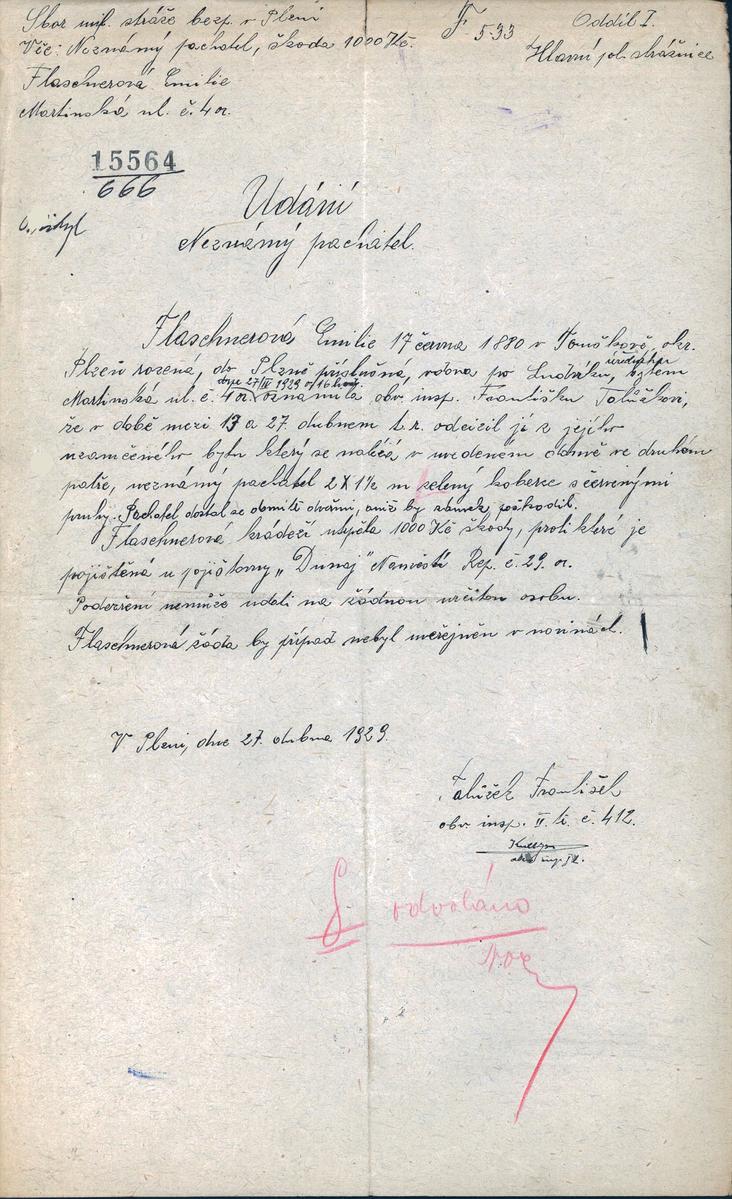 Sbor unif. stráže bezp. v Plzni
F 533
Oddíl I.
Věc: Neznámý pachatel, škoda 1000 Kč.
Hlavní pol. strážnice
Flaschnerová Emilie
Martinská ul. č. 4 n.
15564
666
Udání
Neznámý pachatel.
Flaschnerová Emilie 17 června 1880 v okr.
Plzeň rozená, do Plzně příslušná, vdova po úředníku, bytem
Martinská ul. č. 4 n. dne 27/IV 1929 o 16 hod. oznámila obv. insp. Františku
že v době mezi 13 a 27. dubnem t. r. odcizil jí z jejího
uzamčeného bytu který se nalézá v uvedeném domě ve druhém
patře, neznámý pachatel 2 X 1½ m zelený koberec s červenými
pruhy. Pachatel dostal se do bytu dveřmi, aniž by zámek poškodil.
Flaschnerová krádeží utrpěla 1000 Kč škody, proti které je
pojištěná u pojišťovny „Dunaj" Náměstí Rep. č. 29. n.
Podezření nemůže udati na žádnou určitou osobu.
Flaschnerová žádá by případ nebyl uveřejněn v novinách.
V Plzni, dne 27. dubna 1929.
František
obv. insp. II. tř. č. 412.
odvoláno